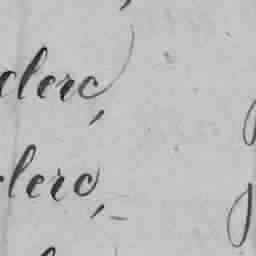 clerc,
clerc,-